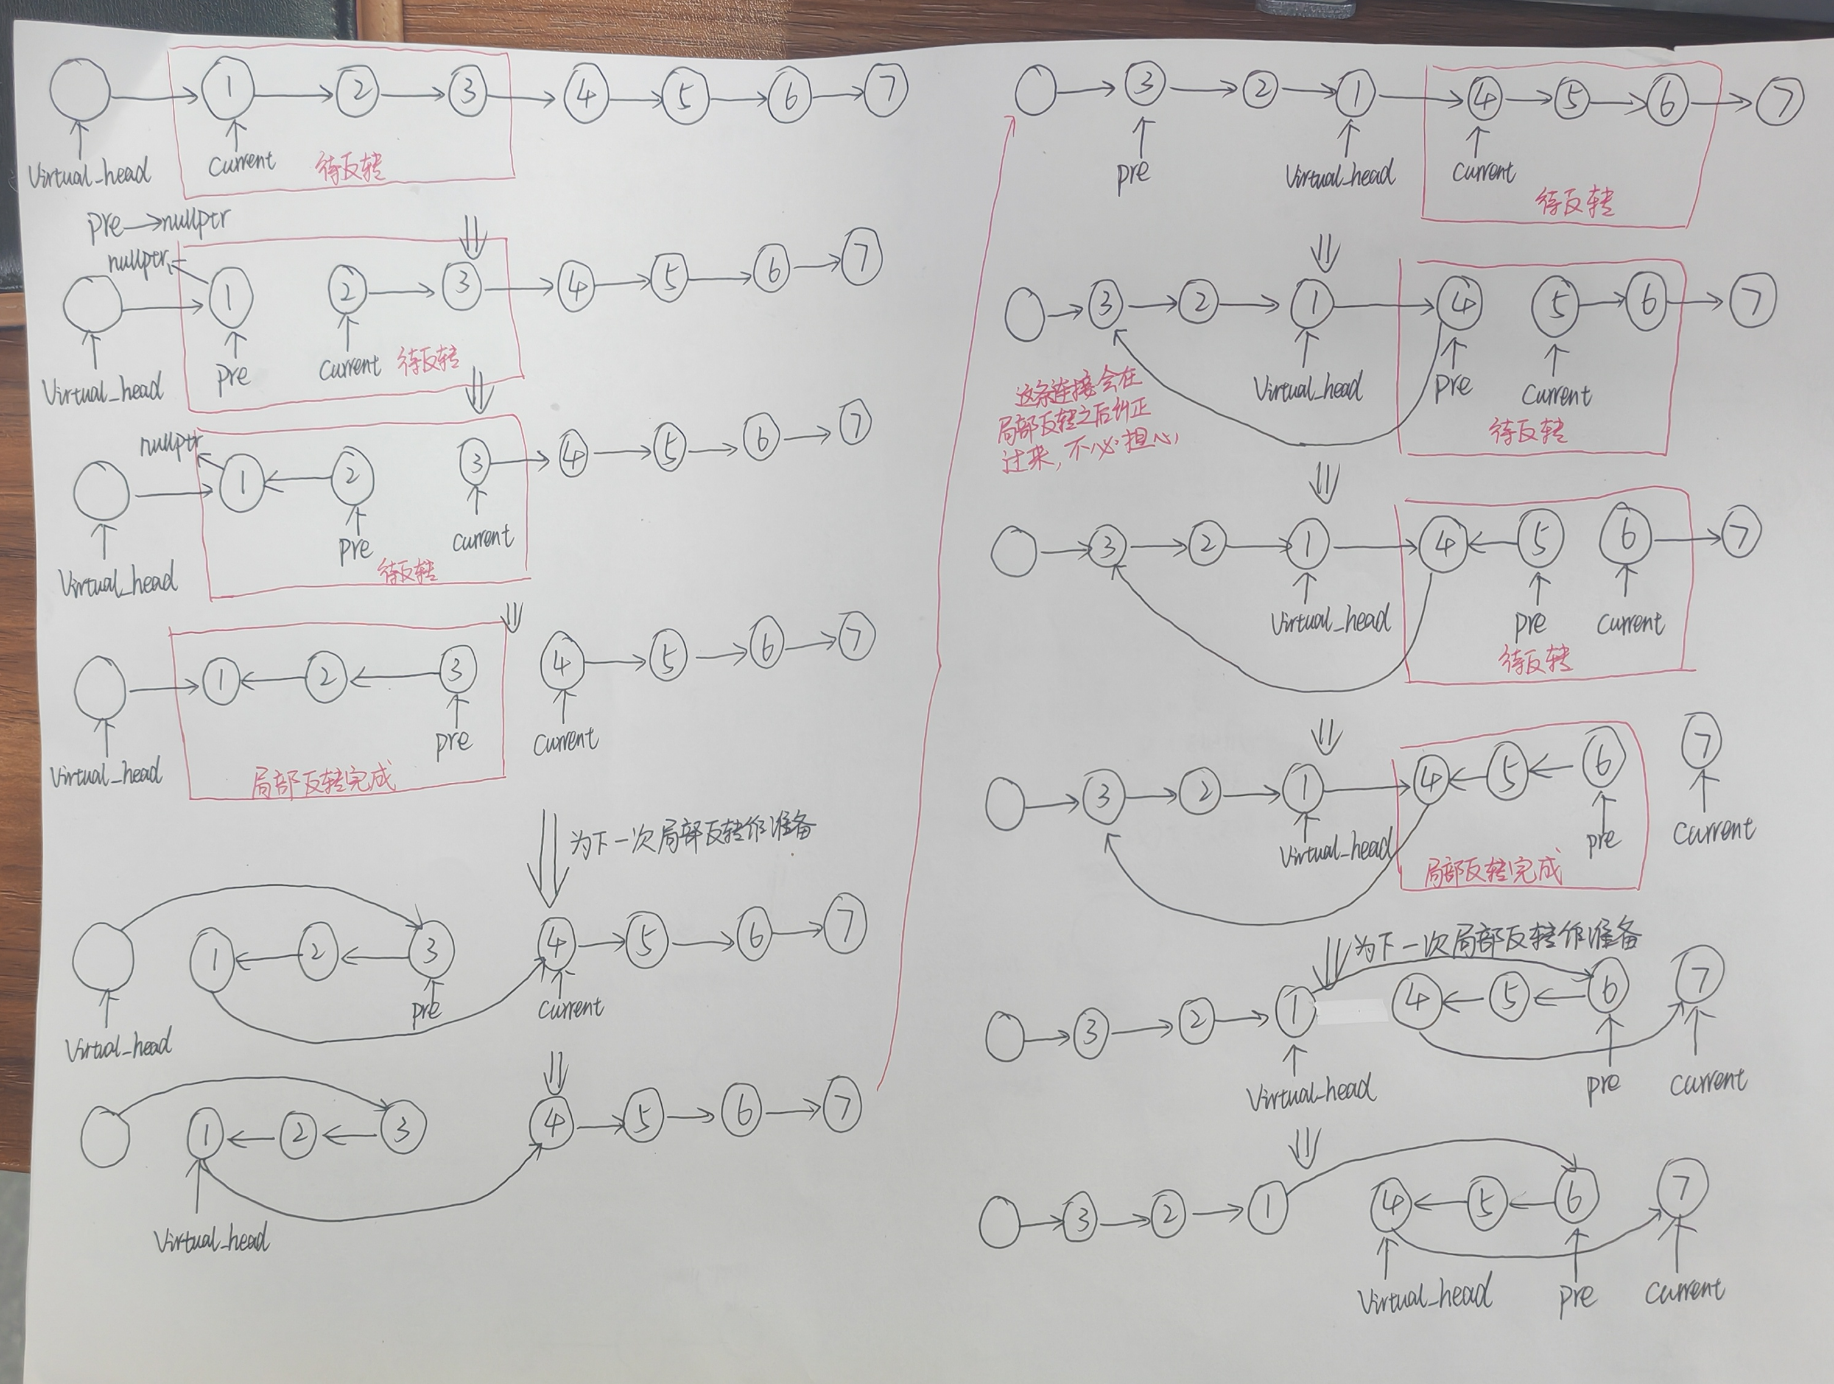 1 2 3 4 5 6 7
Virtual_head
Current
待反转
pre→nullptr
nullptr
1 2 3 4 5 6 7
Virtual_head
pre
Current
待反转
nullptr
1 2 3 4 5 6 7
Virtual_head
pre
Current
待反转
1 2 3 4 5 6 7
Virtual_head
pre
Current
局部反转完成
为下一次局部反转作准备
1 2 3 4 5 6 7
Virtual_head
pre
Current
1 2 3 4 5 6 7
Virtual_head
3 2 1 4 5 6 7
pre
Virtual_head
Current
待反转
3 2 1 4 5 6 7
Virtual_head
pre
Current
待反转
这条连接会在
局部反转之后纠正
过来,不必担心
3 2 1 4 5 6 7
Virtual_head
pre
Current
待反转
3 2 1 4 5 6 7
Virtual_head
pre
Current
局部反转完成
为下一次局部反转作准备
3 2 1 4 5 6 7
Virtual_head
pre
Current
3 2 1 4 5 6 7
Virtual_head
pre
Current